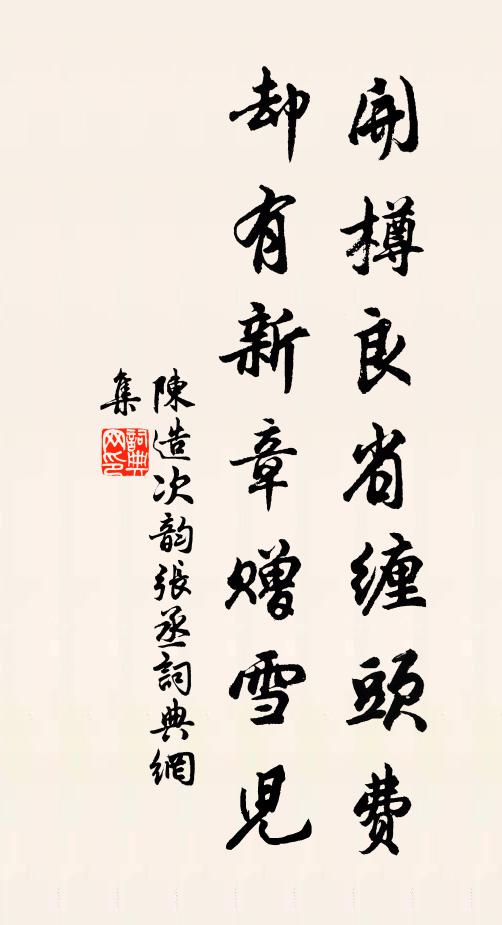 開樽良省纏頭費
却有新章贈雪児
陳造次韵張丞詞典網
集
詞典
网印